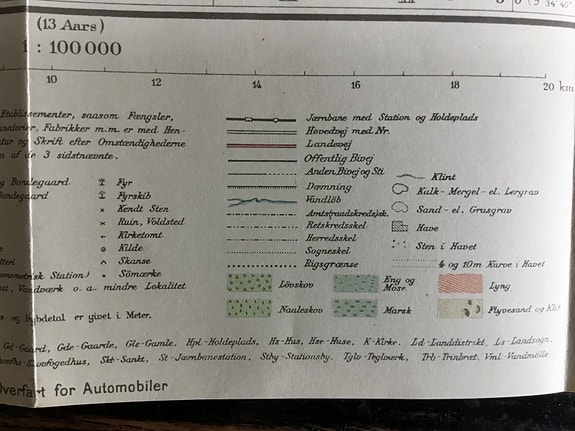 (13 Aars)
1 : 100 000
10 12 14 16 18 20 km
Etablissementer, saasom Fængsler,
Fabrikker m.m. er med Hen-
og Skrift efter Omstændighederne
af de 3 sidstnævnte.
Jærnbane med Station og Holdeplads
Hovedvej med Nr.
Landevej
Offentlig Bivej
Anden Bivej og Sti
Dæmning
Vandløb
Amts(raadskreds)sk.
Retskredsskel
Herredsskel
Sogneskel
Rigsgrænse
Bondegaard
Fyr
Fyrskib
Kendt Sten
Ruin, Voldsted
Kirketomt
Kilde
Skanse
Sømærke
Station)
Vandværk o. a. mindre Lokalitet
Klint
Kalk- Mergel- el. Lergrav
Sand- el. Grusgrav
Have
Sten i Havet
4 og 10m Kurve i Havet
Løvskov
Eng og Mose
Lyng
Naaleskov
Marsk
Flyvesand og Klit
og Dybdetal er givet i Meter.
Gd-Gaard, Gde-Gaarde, Gle-Gamle. Hpl-Holdeplads, Hs-Hus, Hse-Huse, K-Kirke. Ld-Landdistrikt, Ls-Landsogn,
Skt-Sankt, St-Jærnbanestation, Stby-Stationsby. Tglv-Teglværk, Trb-Trinbræt. Vml-Vandmølle
Overfart for Automobiler